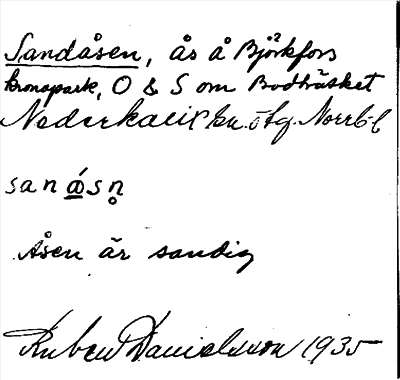 Sandåsen, ås å Björkfors
kronopark, O & S om Bodträsket
Nederkalix sn. Norrb.l
Åsen är sandig
Ruben Danielsson 1935